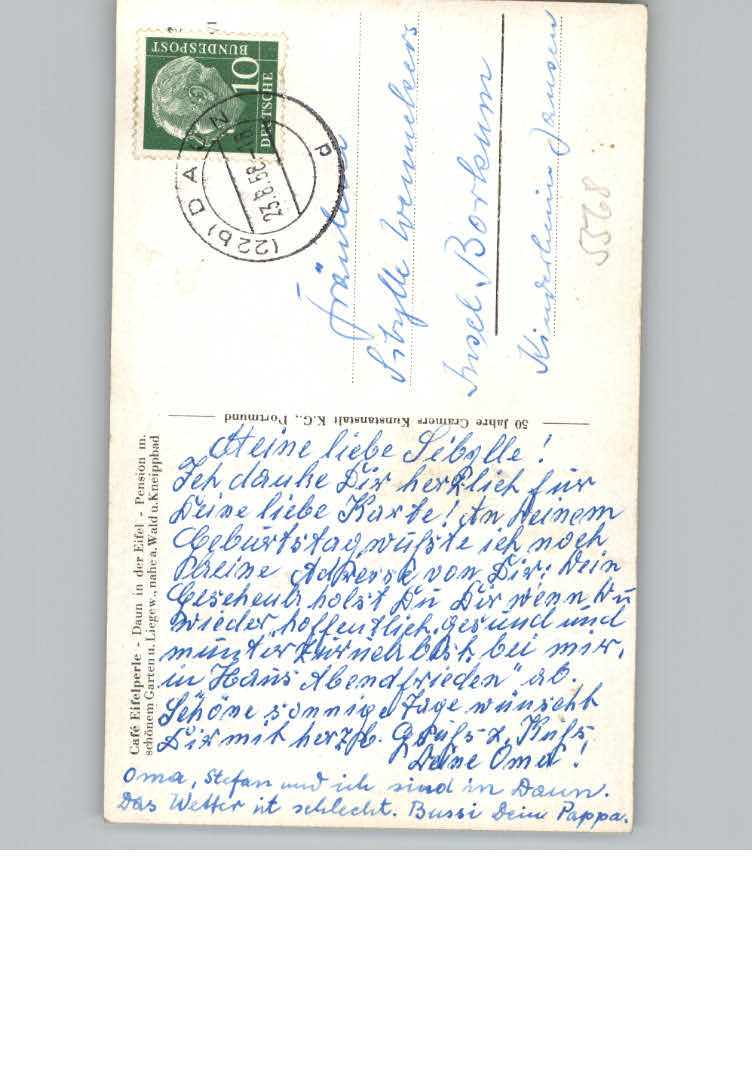 Café Eifelperle - Daun in der Eifel - Pension m.
schönem Garten u. Liegew., nahe a. Wald u. Kneippbad
50 Jahre Cramers Kunstanstalt K.G., Dortmund
DEUTSCHE
BUNDESPOST
10
(22b) DAUN
23.8.58
d
Fräulein
Sibylle Wennekers
Insel Borkum
Kinderheim Jansen
5568
Meine liebe Sibylle!
Ich danke Dir herzlich für
Deine liebe Karte! An Deinem
Geburtstag wußte ich noch
keine Adresse von Dir; Dein
Geschenk holst Du Dir wenn Du
wieder, hoffentlich, gesund und
munter zurück bist, bei mir,
in Haus Abendfrieden" ab.
Schöne sonnige Tage wünscht
Dir mit herzl. Gruß u. Kuß
Deine Oma!
Oma, Stefan und ich sind in Daun.
Das Wetter ist schlecht. Bussi Dein Pappa.